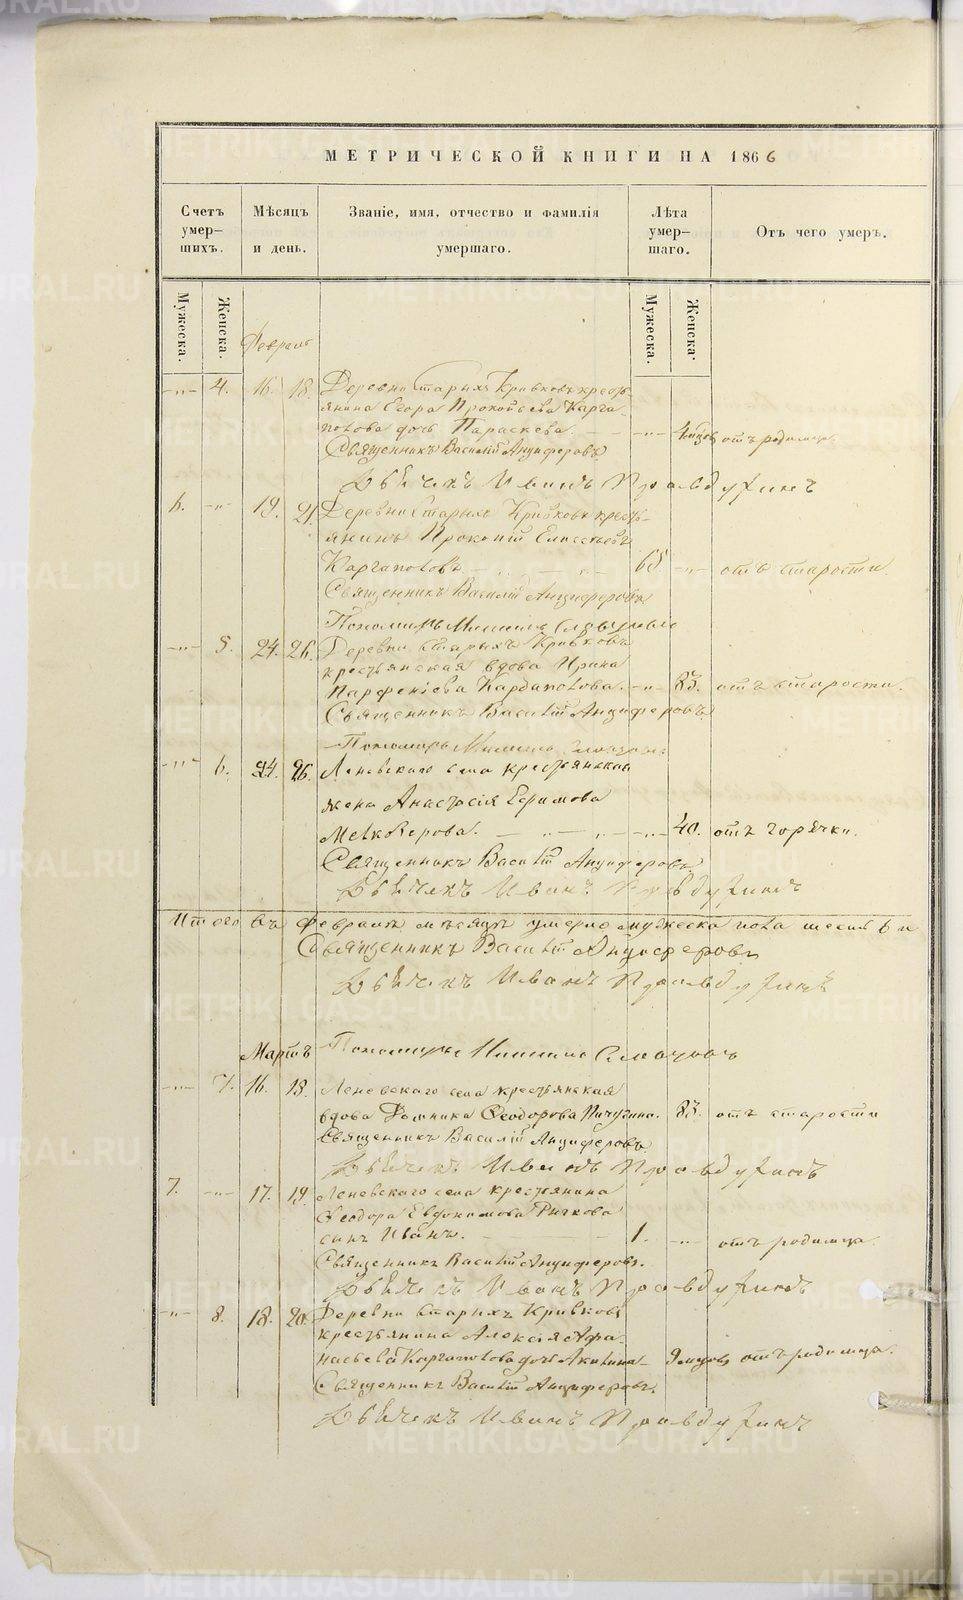 МЕТРИЧЕСКОЙ КНИГИ НА 1866
Счетъ умер-шихъ. Мѣсяцъ и день. Званіе, имя, отчество и фамилія умершаго. Лѣта умер-шаго. Отъ чего умеръ.
Мужеска. Женска. Мужеска. Женска.
Февраль
-"- 4. 16. 18. Деревни Старыхъ Кривковъ кресть-
янина Егора Прокопьева Карга-
полова дочь Параскева. -"- отъ родимца.
Священникъ Василій Анциферовъ
Дьячекъ Иванъ Правдухинъ
6. -"- 19. 21. Деревни Старыхъ Кривковъ кресть-
янинъ Прокопій Елисеевъ
Каргаполовъ. 65. -"- отъ старости.
Священникъ Василій Анциферовъ
Пономарь
-"- 5. 24. 26. Деревни Старыхъ Кривковъ
крестьянская вдова Ирина
Парфеніева Каргаполова. -"- 83. отъ старости.
Священникъ Василій Анциферовъ
Пономарь
-"- 6. 24. 26. Леневскаго села крестьянская
жена Анастасія Ефимова
Мелкозерова. -"- 40. отъ горячки.
Священникъ Василій Анциферовъ
Дьячекъ Иванъ Правдухинъ
Итого въ Февралѣ мѣсяцѣ умерло мужеска пола шесть 6 и
Священникъ Василій Анциферовъ
Дьячекъ Иванъ Правдухинъ
Мартъ Пономарь
-"- 7. 16. 18. Леневскаго села крестьянская
вдова Домника Ѳеодорова Пичугина. 83. отъ старости
Священникъ Василій Анциферовъ
Дьячекъ Иванъ Правдухинъ
7. -"- 17. 19. Леневскаго села крестьянина
Ѳеодора Евдокимова Ричкова
сынъ Иванъ. 1. -"- отъ родимца.
Священникъ Василій Анциферовъ.
Дьячекъ Иванъ Правдухинъ
-"- 8. 18. 20. Деревни Старыхъ Кривковъ
крестьянина Алексія Афа-
насьева Каргаполова дочь Акилина 9 отъ родимца.
Священникъ Василій Анциферовъ.
Дьячекъ Иванъ Правдухинъ
METRIKI.GASO-URAL.RU